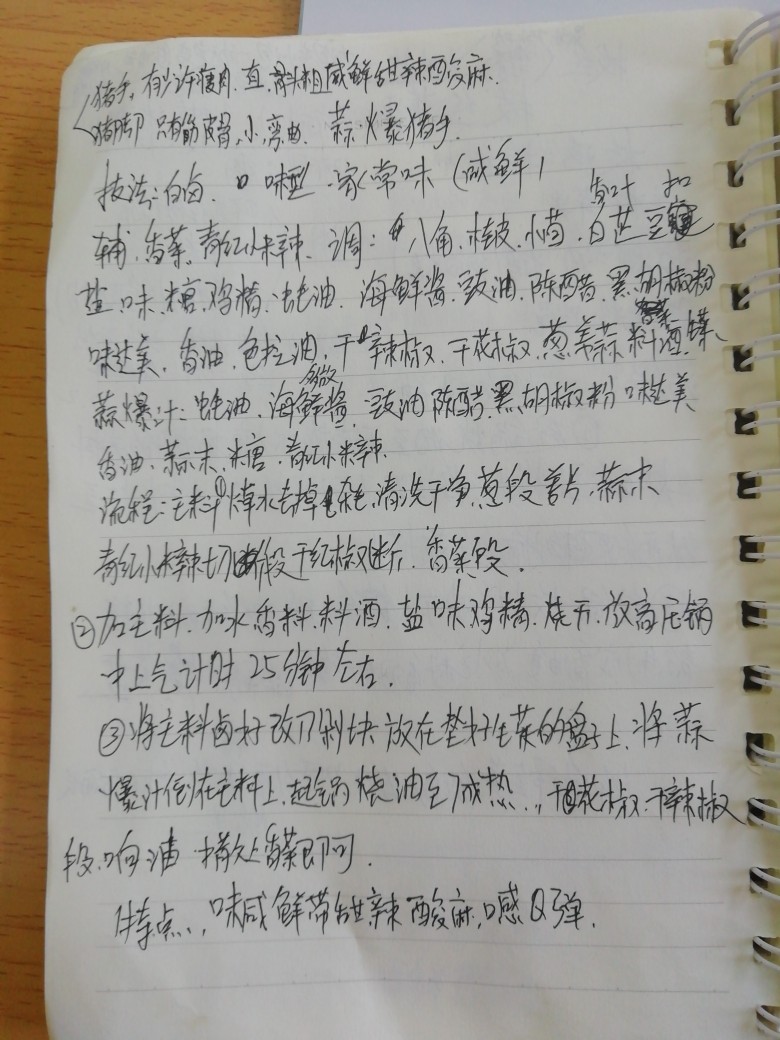 猪手,有少许瘦肉.直.斜粗咸鲜甜辣酸麻.
猪脚 只有筋皮骨,小,弯曲. 蒜爆猪手.
技法:白卤. 味型.家常味(咸鲜)
香叶 扣
辅.香菜.青红小米辣.调:八角.桂皮.小茴.白芷豆蔻
盐.味.糖.鸡精.蚝油.海鲜酱.豉油.陈醋.黑胡椒粉
味达美.香油.色拉油,干辣椒.干花椒.葱姜蒜 料酒.
蒜爆汁:蚝油.海鲜酱.豉油 陈醋.黑胡椒粉 味达美
香油.蒜末.糖.青红小米辣.
流程:主料①焯水去掉杂,清洗干净.葱段姜片,蒜末
青红小米辣切段干红椒断.香菜段.
②加主料.加水香料.料酒.盐味鸡精.烧开.放高压锅
中上气计时25分钟左右.
③将主料卤好改刀剁块放在垫好生菜的盘子上.将蒜
爆汁倒在主料上.起锅烧油至7成热.,干花椒.干辣椒
段.响油 撒上香菜即可.
特点:,味咸鲜带甜辣酸麻,口感Q弹.